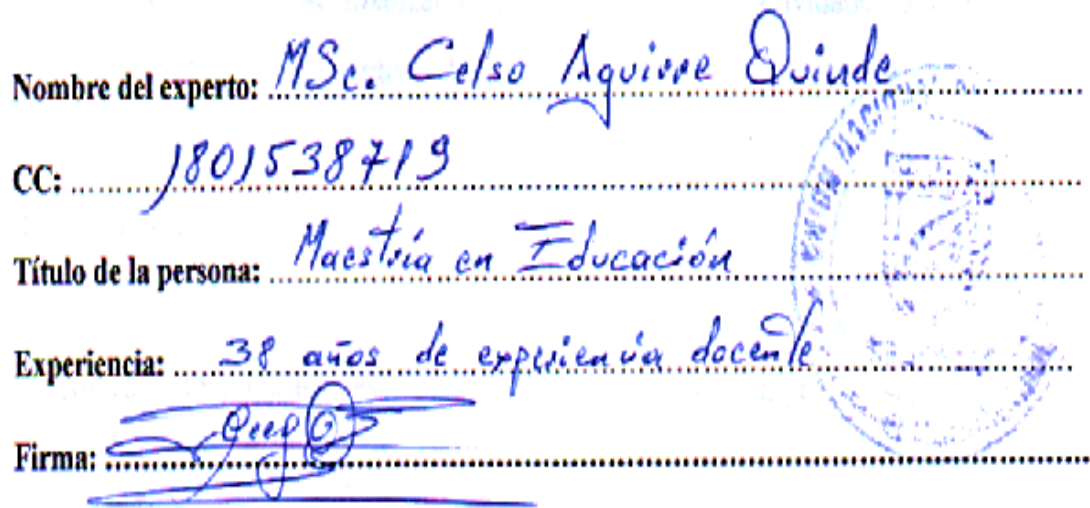 Nombre del experto: MSc. Celso Aguirre Quinde
CC: 1801538719
Título de la persona: Maestría en Educación
Experiencia: 38 años de experiencia docente
Firma: